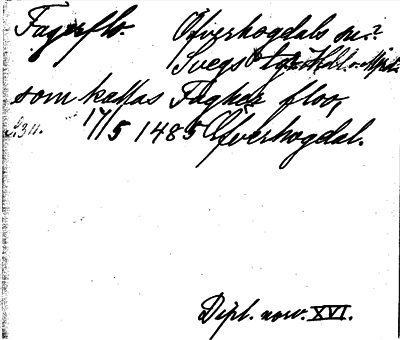 Fagerflo. Öfverhogdals sn.?
Svegs tg
som kallas Fagher floo,
S. 311. 17/5 1485 Öfverhogdal.
Dipl. norv. XVI.